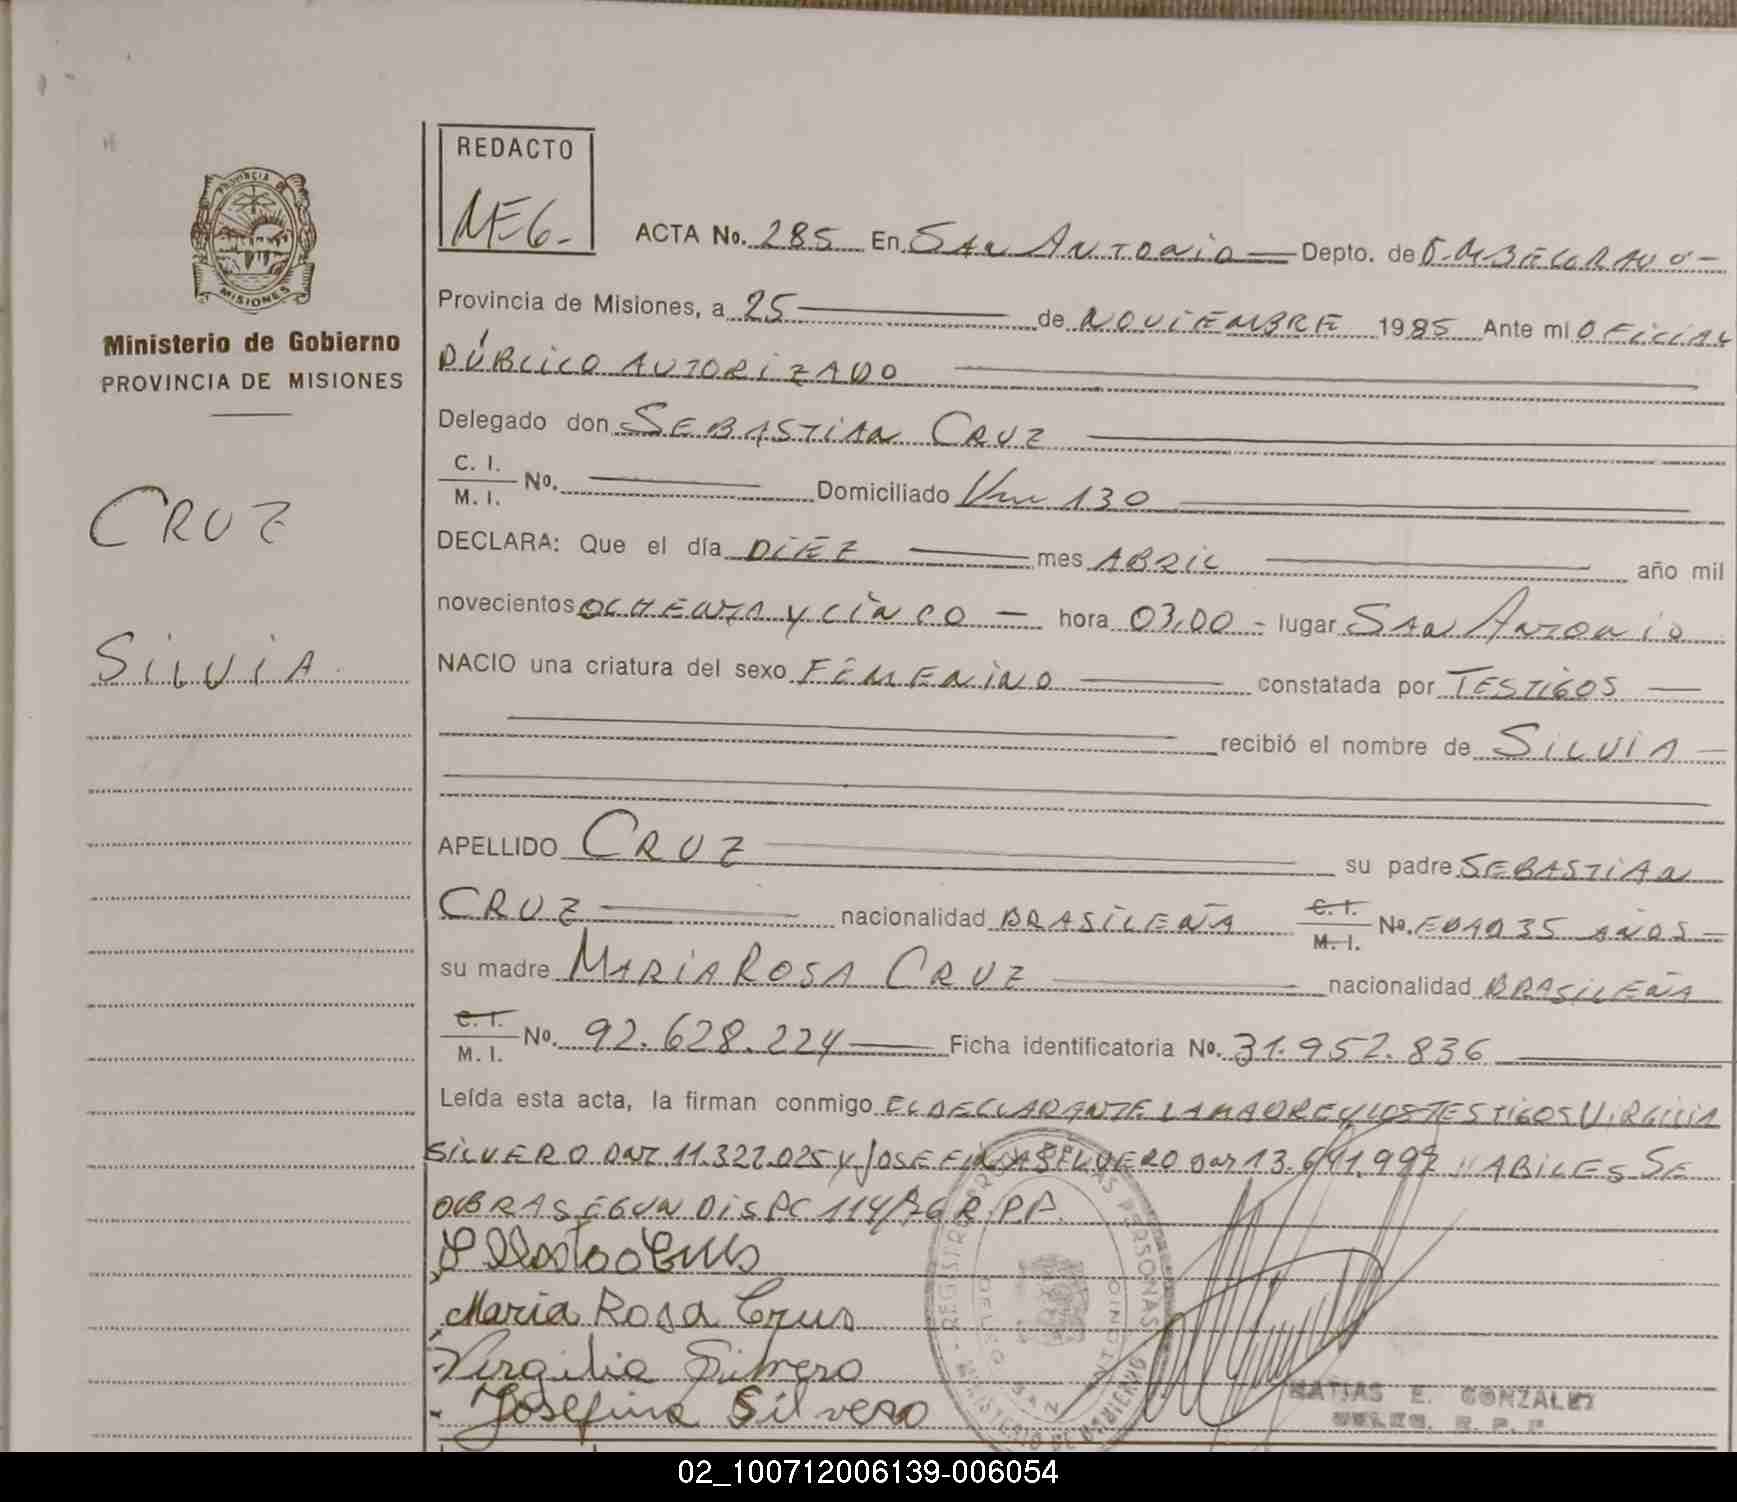 PROVINCIA DE
MISIONES
Ministerio de Gobierno
PROVINCIA DE MISIONES
CRUZ
SILVIA
REDACTO
MEG.
ACTA No. 285 En SAN ANTONIO Depto. de
Provincia de Misiones, a 25 de NOVIEMBRE 1985 Ante mí OFICIAL
PÚBLICO AUTORIZADO
Delegado don SEBASTIAN CRUZ
C. I.
M. I. No. Domiciliado Km 130
DECLARA: Que el día DIEZ mes ABRIL año mil
novecientos OCHENTA Y CINCO hora 03,00 - lugar SAN ANTONIO
NACIO una criatura del sexo FEMENINO constatada por TESTIGOS
recibió el nombre de SILVIA
APELLIDO CRUZ su padre SEBASTIAN
CRUZ nacionalidad BRASILEÑA C. I. M. I. No. EDAD 35 AÑOS
su madre MARIA ROSA CRUZ nacionalidad BRASILEÑA
C. I.
M. I. No. 92.628.224 Ficha identificatoria No. 31.952.836
Leída esta acta, la firman conmigo EL DECLARANTE LA MADRE Y LOS TESTIGOS VIRGILIA
SILVERO DNI 11.322.025 Y JOSEFINA SILVERO DNI HABILES SE
OBRA SEGUN DISPC 114/76 R.P.P.
Maria Rosa Crus
Virgilia Silvero
Josefina Silvero
REGISTRO DE LAS PERSONAS
MINISTERIO DE GOBIERNO
DELEG SAN ANTONIO
MATIAS E. GONZALEZ
DELEG. R. P. P.
02_100712006139-006054